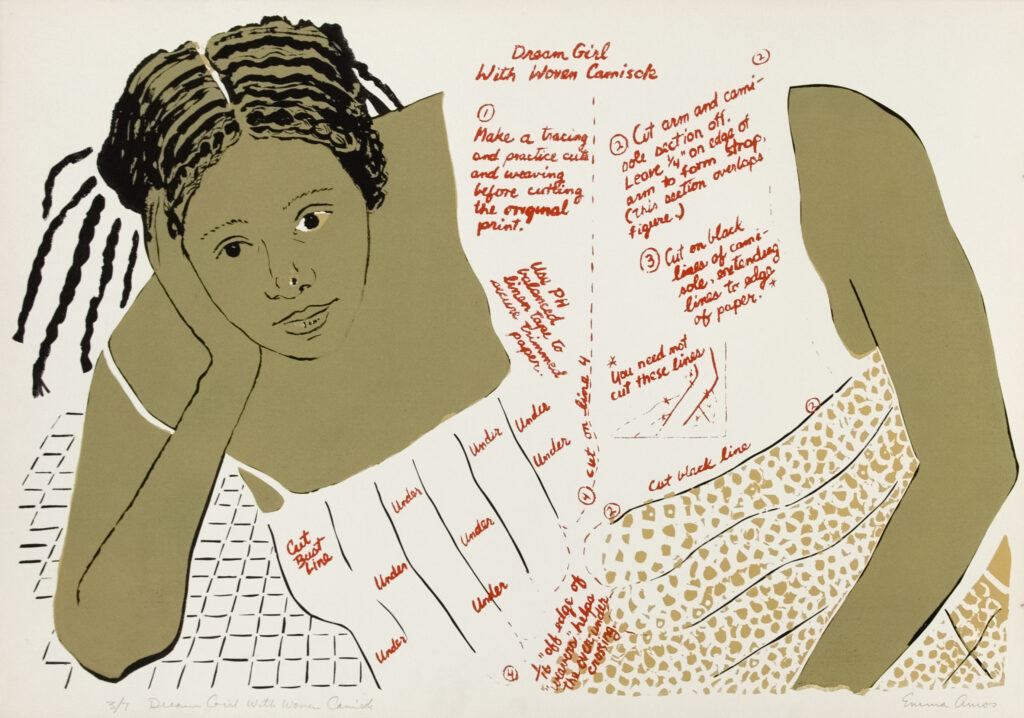 Dream Girl
With Woven Camisole
①
Make a tracing
and practice cuts
and weaving
before cutting
the original
print.
②
② Cut arm and cami-
sole section off.
Leave ¼" on edge of
arm to form strap.
(This section overlaps
figure.)
③ Cut on black
lines of cami-
sole, extending
lines to edge
of paper.*
Use PH
balanced
linen tape to
secure trimmed
paper.
* You need not
cut these lines
④ cut on line 4
②
cut black line
②
Under
Under
Under
Under
Under
Under
Under
Under
Cut
Bust
Line
④
1/16" off edge of
"weavers" helps
the over-under
crossing
3/7 Dream Girl With Woven Camisole
Emma Amos